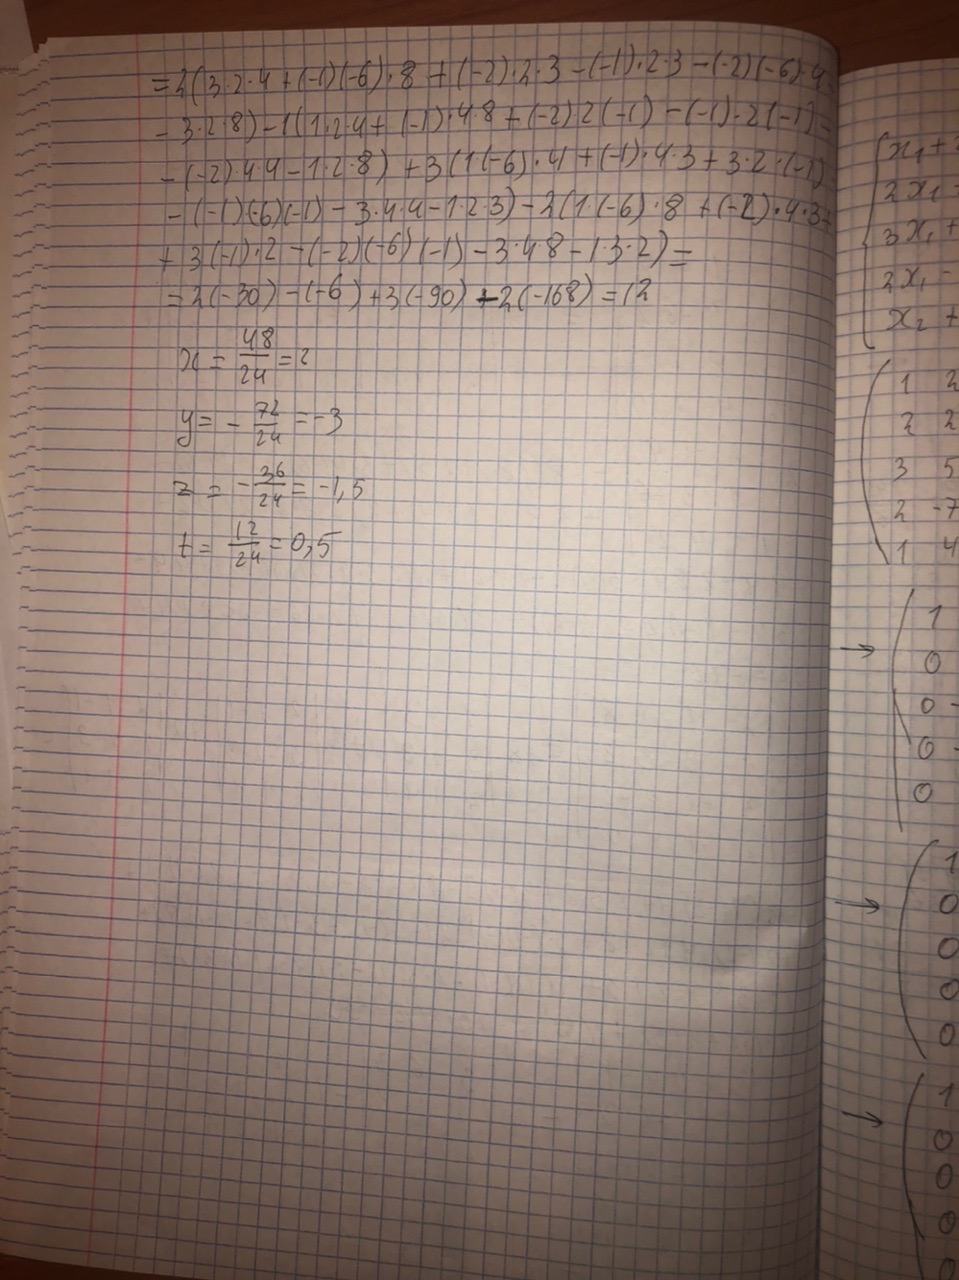 =2(3·2·4+(-1)(-6)·8+(-2)·2·3-(-1)·2·3-(-2)(-6)·4-
-3·2·8)-1(1·2·4+(-1)·4·8+(-2)2(-1)-(-1)·2(-1)-
-(-2)·4·4-1·2·8)+3(1(-6)·4+(-1)·4·3+3·2·(-1)
-(-1)(-6)(-1)-3·4·4-1·2·3)-2(1·(-6)·8+(-2)·4·3+
+3(-1)·2-(-2)(-6)(-1)-3·4·8-1·3·2)=
=2(-30)-(-6)+3(-90)-2(-168)=12
x=48/24=2
y=-72/24=-3
z=-36/24=-1,5
t=12/24=0,5
x₁+
2x₁
3x₁+
2x₁-
x₂+
1 2
2 2
3 5
2 -7
1 4
→ 1
0
0 -
0 -
0
→ 1
0
0
0
0
→ 1
0
0
0